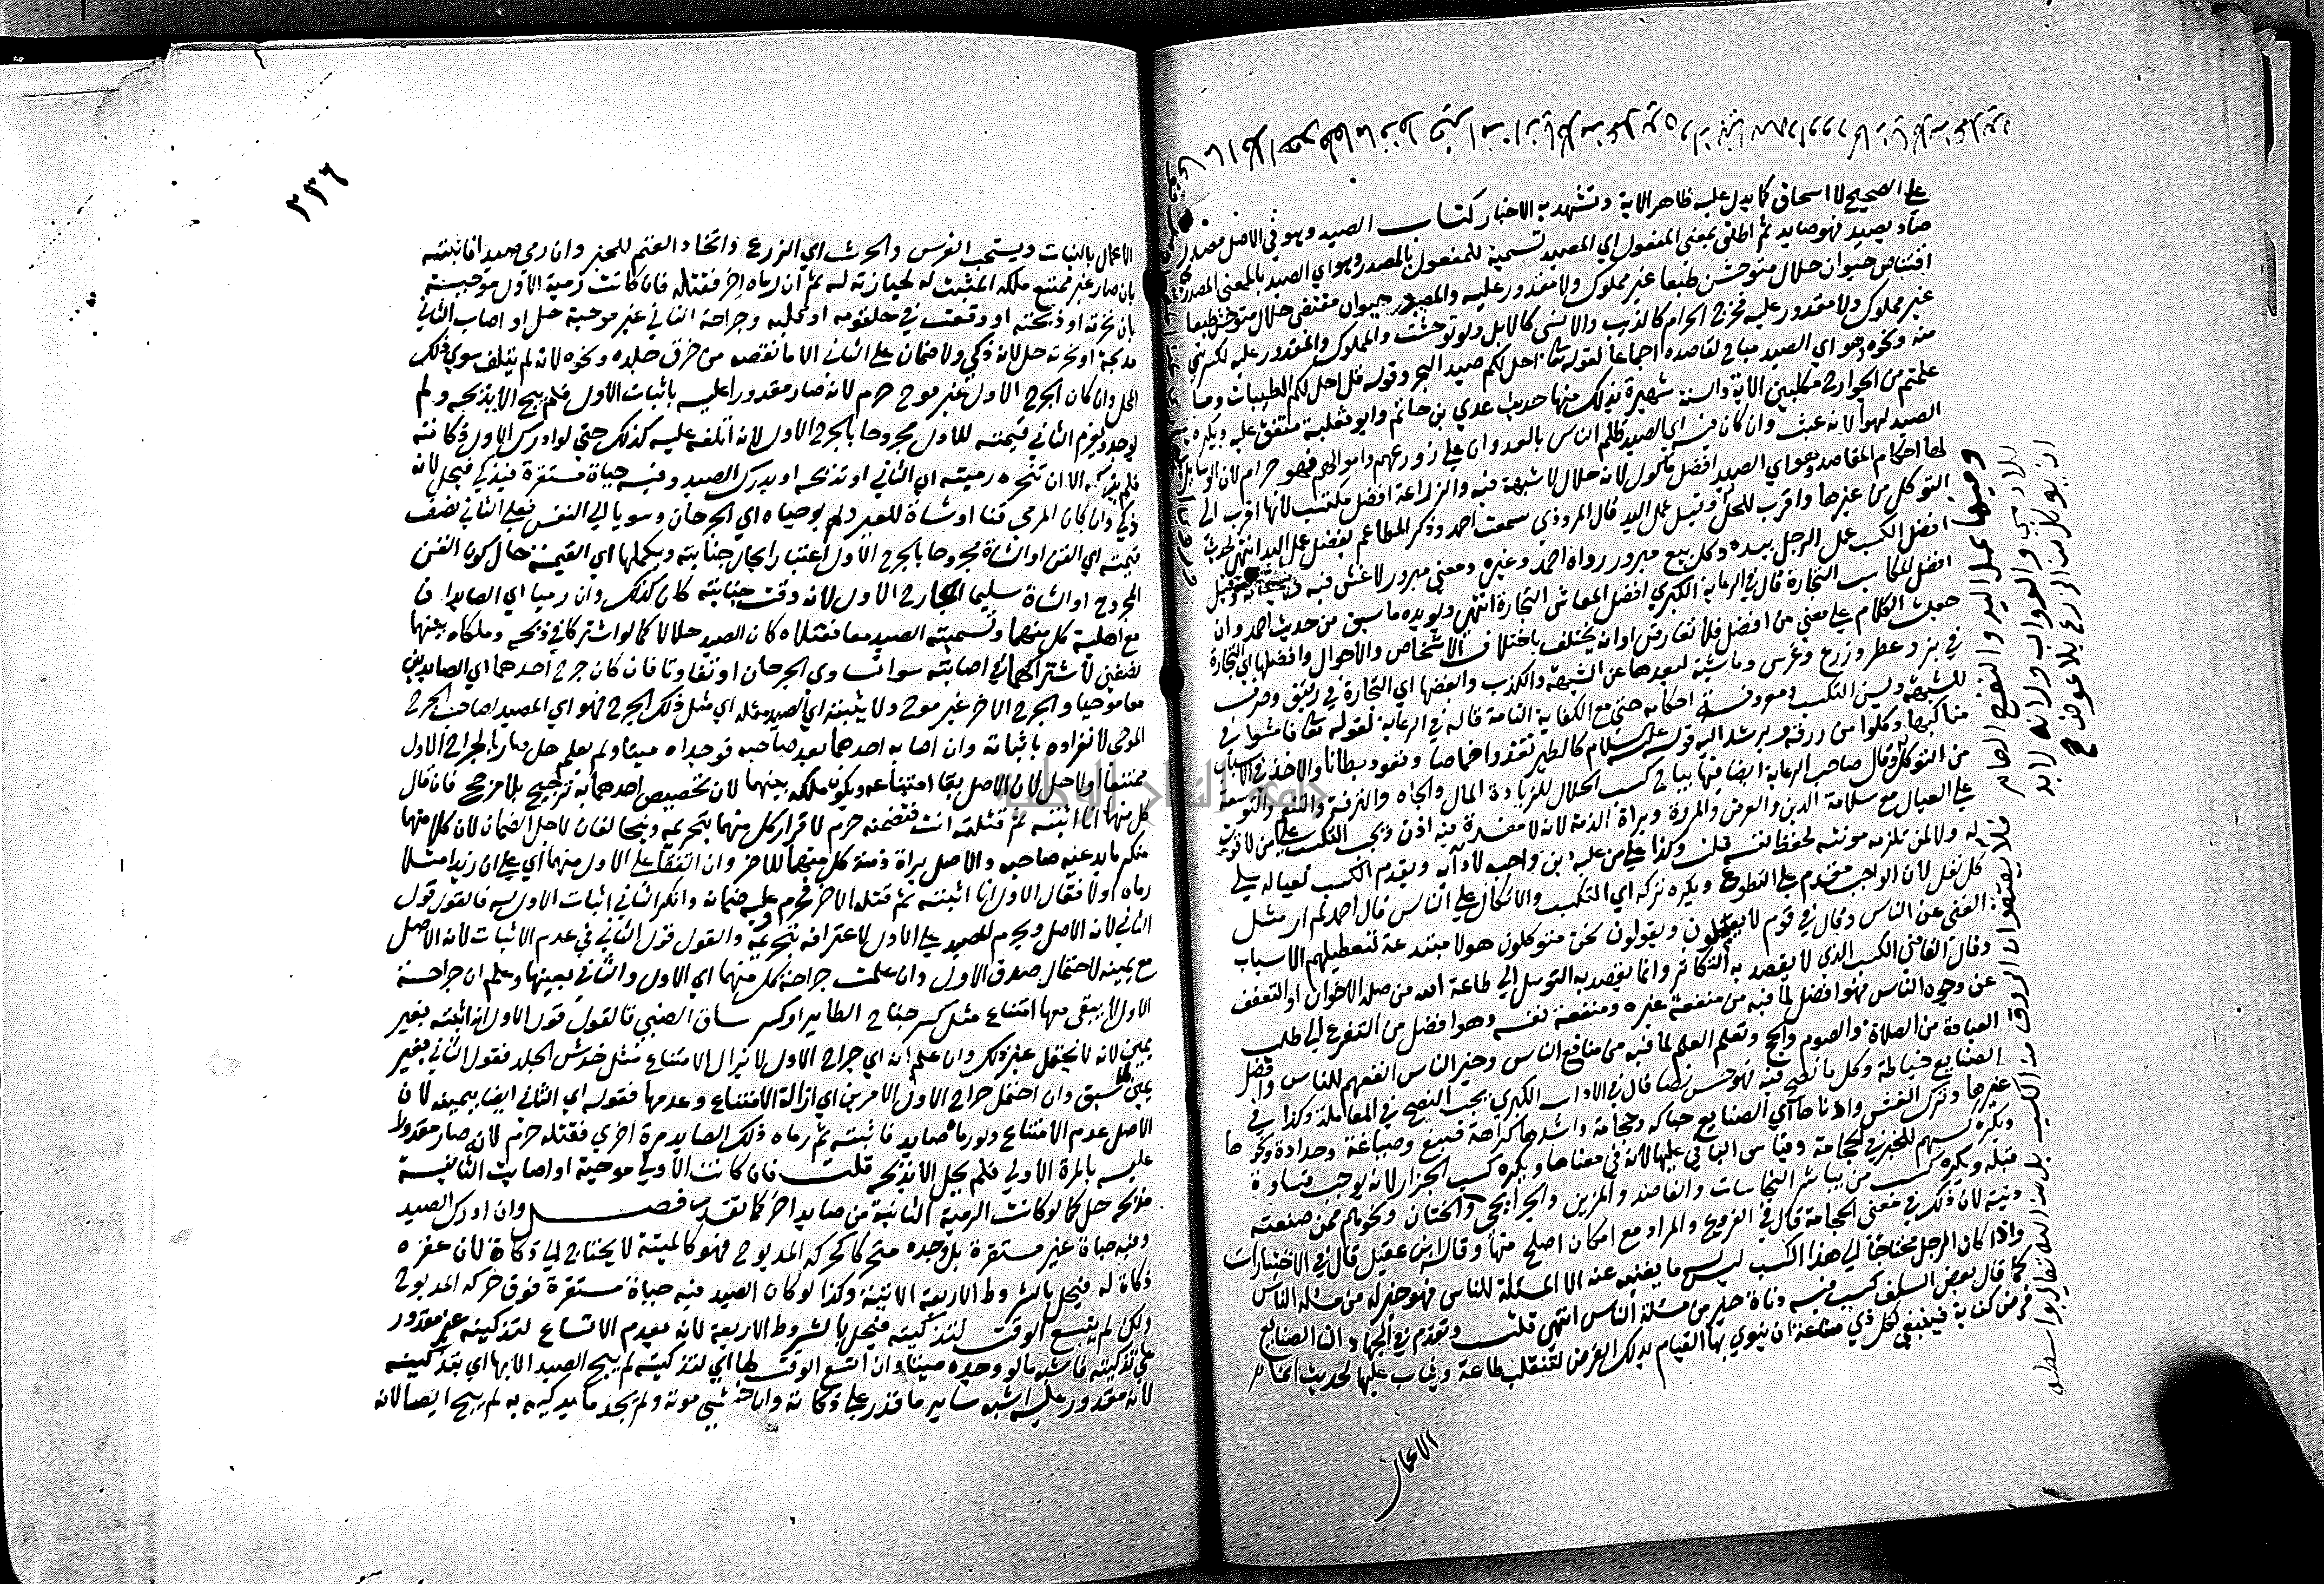 على الصحيح لا اسحاق كما يدل عليه ظاهر الاية وتشهد به الاخبار كتاب الصيد وهو في الاصل مصدر
صاد يصيد فهو صايد ثم اطلق بمعنى المفعول اي المصيد تسمية للمفعول بالمصدر وهو اي الصيد بالمعنى المصدري
اقتناص حيوان حلال متوحش طبعا غير مملوك ولا مقدور عليه والمصيد حيوان مقتنص حلال متوحش طبعا
غير مملوك ولا مقدور عليه فخرج الحرام كالذيب والانسي كالابل ولو توحشت والمملوك والمقدور عليه لكسر شي
منه ونحوه وهو اي الصيد مباح لقاصده اجماعا لقوله تعالى احل لكم صيد البحر وقوله قل احل لكم الطيبات وما
علمتم من الجوارح مكلبين الاية والسنة شهيرة بذلك منها حديث عدي بن حاتم وابو ثعلبة متفق عليه ويكره
الصيد لهوا لانه عبث وان كان فيه اي الصيد ظلم الناس بالعدوان على زروعهم واموالهم فهو حرام لان الوسايل
لها احكام المقاصد وهو اي الصيد افضل ماكول لانه حلال لا شبهة فيه والزراعة افضل مكتسب لانها اقرب الى
التوكل من غيرها واقرب للحل وقيل عمل اليد قال المروذي سمعت احمد وذكر المطاعم يفضل عمل اليد انتهى لحديث
افضل الكسب عمل الرجل بيده وكل بيع مبرور رواه احمد وغيره ومعنى مبرور لا غش فيه ولا خيانة وقيل
افضل المكاسب التجارة قال في الرعاية الكبرى افضل المعاش التجارة انتهى ويويده ما سبق من حديث احمد وان
حملت الكلام على معنى من افضل فلا تعارض او انه يختلف باختلاف الاشخاص والاحوال وافضلها اي التجارة
في بز وعطر وزرع وغرس وماشية لبعدها عن الشبهة والكذب وابغضها اي التجارة في رقيق وصرف
للشبهة ويسن التكسب ومعرفة احكامه حتى مع الكفاية التامة قاله في الرعاية لقوله تعالى فامشوا في
مناكبها وكلوا من رزقه ويرشد اليه قوله عليه السلام كالطير تغدوا خماصا وتعود بطانا والاخذ في الاسباب
من التوكل وقال صاحب الرعاية ايضا فيها يباح كسب الحلال للزيادة المال والجاه والترفه والتنعم والتوسعة
على العيال مع سلامة الدين والعرض والمروة وبراة الذمة لانه لا مفسدة فيه اذن ويجب التكسب على من لا قوت
له ولا لمن تلزمه مونته لحفظ نفسه قلت وكذا على من عليه دين واجب لادائه ويقدم الكسب لعياله على
كل نفل لان الواجب مقدم على التطوع ويكره تركه اي التكسب والاتكال على الناس قال احمد لم ار مثل
الغنى عن الناس وقال في قوم لا يعملون ويقولون نحن متوكلون هولا مبتدعة لتعطيلهم الاسباب
وقال القاضي الكسب الذي لا يقصد به التكاثر وانما يقصد به التوسل الى طاعة الله من صلة الاخوان او التعفف
عن وجوه الناس فهو افضل لما فيه من منفعة غيره ومنفعة نفسه وهو افضل من التفرغ الى طلب
العبادة من الصلاة والصوم والحج وتعلم العلم لما فيه من منافع الناس وخير الناس انفعهم للناس وافضل
الصنايع خياطة وكل ما نصح فيه فهو حسن نصا قال في الاداب الكبرى يجب النصح في المعاملة وكذا في
غيرها وترك الغش وادناها اي الصنايع حياكة وحجامة واشدها كراهة صبغ وصياغة وحدادة ونحوها
ويكره كسبهم للخبر في الحجامة وقياس الباقي عليها لانه في معناها ويكره كسب الجزار لانه يوجب قساوة
قلبه ويكره كسب من يباشر النجاسات والفاصد والمزين والجرايحي والختان ونحوهم ممن صنعته
دنيه لان ذلك في معنى الحجامة قال في الفروع والمراد مع امكان اصلح منها وقاله ابن عقيل قال في الاختيارات
واذا كان الرجل محتاجا الى هذا الكسب ليس ما يغنيه عنه الا المسئلة للناس فهو خير له من مسئلة الناس
كما قال بعض السلف كسب فيه دناة خير من مسئلة الناس انتهى قلت وتقدم في الجهاد ان الصنايع
فرض كفاية فينبغي لكل ذي صناعة ان ينوي بها القيام بذلك الفرض لتنقلب طاعة ويثاب عليها لحديث انما
الاعمال
وقيل عمل اليد والنفع العام
للادمي والدواب ولانه لا بد
ان يوكل من الزرع بلا عوض
فلا يعتقد ان الرزق من الكسب بل من الله تعالى بواسطه
٣٣٦
الاعمال بالنيات ويستحب الغرس والحرث اي الزرع واتخاذ الغنم للخبر وان رمى صيدا فاثبته
بان صار غير ممتنع ملكه المثبت له لحيازته له ثم ان رماه اخر فقتله فان كانت رمية الاول موحية
بان نحرته او ذبحته او وقعت في حلقومه او قلبه وجراحة الثاني غير موحية حل او اصاب الثاني
مذبحه او نحره حل لانه ذكي ولا ضمان على الثاني الا ما نقصه من خرق جلده ونحوه لانه لم يتلف سوى ذلك
المحل وان كان الجرح الاول غير موح حرم لانه صار مقدورا عليه باثبات الاول فلم يبح الا بذبحه ولم
يوجد ويغرم الثاني قيمته للاول مجروحا بالجرح الاول لانه اتلفه عليه كذلك حتى لو ادرك الاول ذكاته
فلم يذكه الا ان تنحره رميته اي الثاني او تذبحه او يدرك الصيد وفيه حياة مستقرة فيذكي فيحل لانه
ذكي وان كان المرمي قنا او شاة للغير ولم يوحياه اي الجرحان وسريا الى النفس فعلى الثاني نصف
قيمته اي القن او الشاة مجروحا بالجرح الاول اعتبارا بحال جنايته ويكملها اي القيمة حال كون القن
المجروح او الشاة سليما الجارح الاول لانه وقت جنايته كان كذلك وان رميا اي الصايدان
مع اهلية كل منهما وتسميته الصيد معا فقتلاه كان الصيد حلالا كما لو اشتركا في ذبحه وملكاه بينهما
نصفين لاشتراكهما في اصابته سوا تساوى الجرحان او تفاوتا فان كان جرح احدهما اي الصايدين
معا موحيا والجرح الاخر غير موح ولا يثبته اي الصيد مثله اي مثل ذلك الجرح فهو اي المصيد لصاحب الجرح
الموحي لانفراده باثباته وان اصابه احدهما بعد صاحبه فوجداه ميتا ولم يعلم هل صار بالجرح الاول
ممتنعا او لا حل لان الاصل بقا امتناعه ويكون ملكه بينهما لان تخصيص احدهما به ترجيح بلا مرجح فان قال
كل منهما انا اثبته ثم قتلته انت فتضمنه حرم لاقرار كل منهما بتحريمه ويتحالفان لاجل الضمان لان كلا منهما
منكر ما يدعيه صاحبه والاصل براة ذمة كل منهما للاخر وان اتفقا على الاول منهما اي على ان زيدا مثلا
رماه اولا فقال الاول انا اثبته ثم قتله الاخر فحرم عليه ضمانه وانكر الثاني اثبات الاول له فالقول قول
الثاني لانه الاصل ويحرم المصيد على الاول لاعترافه بتحريمه والقول قول الثاني في عدم الاثبات لانه الاصل
مع يمينه لاحتمال صدق الاول وان علمت جراحة كل منهما اي الاول والثاني بعينها وعلم ان جراحة
الاول لا يبقى معها امتناع مثل كسر جناح الطاير او كسر ساق الضبي فالقول قول الاول انه اثبته بغير
يمين لانه لا يحتمل غير ذلك وان علم انه اي جراح الاول لا يزال الامتناع مثل خدش الجلد فقول الثاني بغير
يمين لما سبق وان احتمل جراح الاول الامرين اي ازالة الامتناع وعدمها فقوله اي الثاني ايضا بيمينه لان
الاصل عدم الامتناع ولو رماه صايد فاثبته ثم رماه ذلك الصايد مرة اخرى فقتله حرم لانه صار مقدورا
عليه بالمرة الاولى فلم يحل الا بذبحه قلت فان كانت الاولى موحية او اصابت الثانية
مذبحه حل كما لو كانت الرمية الثانية من صايد اخر كما تقدم فصل وان ادرك الصيد
وفيه حياة غير مستقرة بل وجده متحركا كحركة المذبوح فهو كالميتة لا يحتاج الى ذكاة لان عقره
ذكاة له فيحل بالشروط الاربعة الاتية وكذا لو كان الصيد فيه حياة مستقرة فوق حركة المذبوح
ولكن لم يتسع الوقت لتذكيته فيحل بالشروط الاربعة لانه بعدم الاتساع لتذكيته غير مقدور
على تذكيته فاشبه ما لو وجده ميتا وان اتسع الوقت لها اي لتذكيته لم يبح الصيد الا بها اي بتذكيته
لانه مقدور عليه اشبه ساير ما قدر على ذكاته وان خشي موته ولم يجد ما يذكيه به لم يبح ايضا لانه